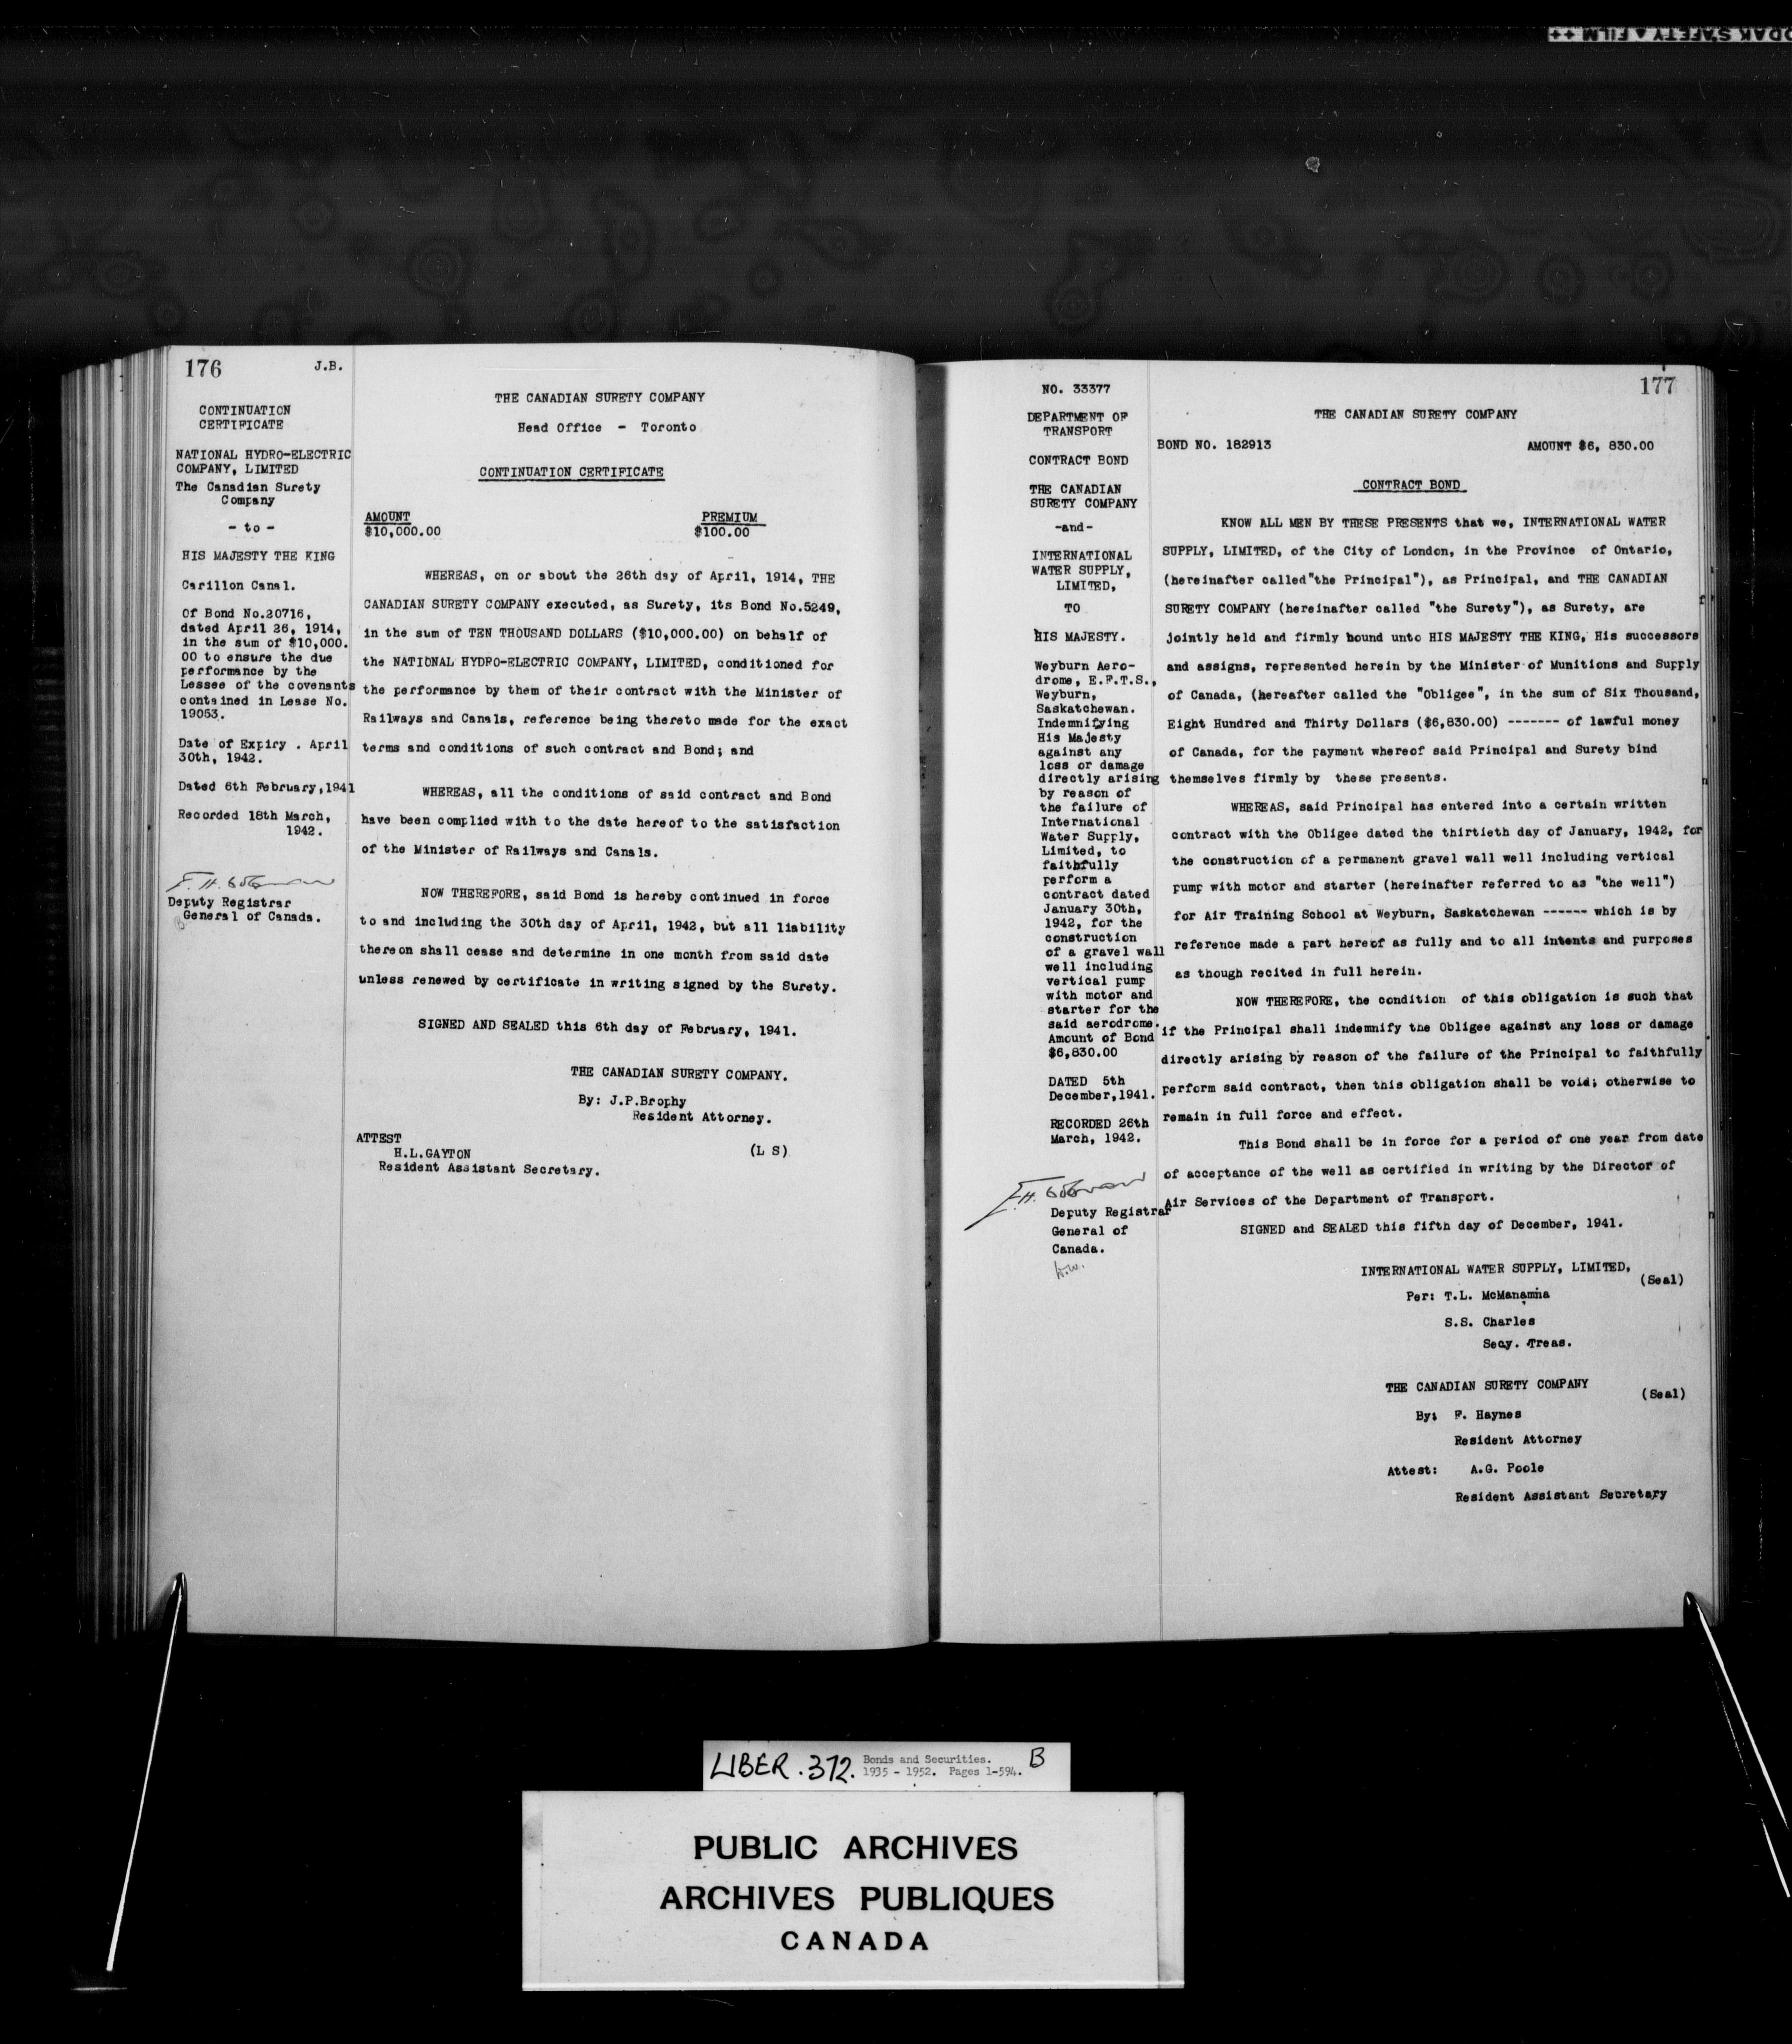 KODAK SAFETY ▲ FILM ++
176
J.B.
CONTINUATION
CERTIFICATE
NATIONAL HYDRO-ELECTRIC
COMPANY, LIMITED
The Canadian Surety
Company
- to -
HIS MAJESTY THE KING
Carillon Canal.
Of Bond No.20716,
dated April 26, 1914,
in the sum of $10,000.
00 to ensure the due
performance by the
Lessee of the covenants
contained in Lease No.
19053.
Date of Expiry . April
30th, 1942.
Dated 6th February,1941
Recorded 18th March,
1942.
Deputy Registrar
General of Canada.
THE CANADIAN SURETY COMPANY
Head Office - Toronto
CONTINUATION CERTIFICATE
AMOUNT PREMIUM
$10,000.00 $100.00
WHEREAS, on or about the 26th day of April, 1914, THE
CANADIAN SURETY COMPANY executed, as Surety, its Bond No.5249,
in the sum of TEN THOUSAND DOLLARS ($10,000.00) on behalf of
the NATIONAL HYDRO-ELECTRIC COMPANY, LIMITED, conditioned for
the performance by them of their contract with the Minister of
Railways and Canals, reference being thereto made for the exact
terms and conditions of such contract and Bond; and
WHEREAS, all the conditions of said contract and Bond
have been complied with to the date hereof to the satisfaction
of the Minister of Railways and Canals.
NOW THEREFORE, said Bond is hereby continued in force
to and including the 30th day of April, 1942, but all liability
thereon shall cease and determine in one month from said date
unless renewed by certificate in writing signed by the Surety.
SIGNED AND SEALED this 6th day of February, 1941.
THE CANADIAN SURETY COMPANY.
By: J.P.Brophy
Resident Attorney.
ATTEST
H.L.GAYTON (L S)
Resident Assistant Secretary.
177
NO. 33377
DEPARTMENT OF
TRANSPORT
CONTRACT BOND
THE CANADIAN
SURETY COMPANY
-and-
INTERNATIONAL
WATER SUPPLY,
LIMITED,
TO
HIS MAJESTY.
Weyburn Aero-
drome, E.F.T.S.,
Weyburn,
Saskatchewan.
Indemnifying
His Majesty
against any
loss or damage
directly arising
by reason of
the failure of
International
Water Supply,
Limited, to
faithfully
perform a
contract dated
January 30th,
1942, for the
construction
of a gravel wall
well including
vertical pump
with motor and
starter for the
said aerodrome.
Amount of Bond
$6,830.00
DATED 5th
December,1941.
RECORDED 26th
March, 1942.
Deputy Registrar
General of
Canada.
THE CANADIAN SURETY COMPANY
BOND NO. 182913 AMOUNT $6, 830.00
CONTRACT BOND
KNOW ALL MEN BY THESE PRESENTS that we, INTERNATIONAL WATER
SUPPLY, LIMITED, of the City of London, in the Province of Ontario,
(hereinafter called"the Principal"), as Principal, and THE CANADIAN
SURETY COMPANY (hereinafter called "the Surety"), as Surety, are
jointly held and firmly bound unto HIS MAJESTY THE KING, His successors
and assigns, represented herein by the Minister of Munitions and Supply
of Canada, (hereafter called the "Obligee", in the sum of Six Thousand,
Eight Hundred and Thirty Dollars ($6,830.00) ------- of lawful money
of Canada, for the payment whereof said Principal and Surety bind
themselves firmly by these presents.
WHEREAS, said Principal has entered into a certain written
contract with the Obligee dated the thirtieth day of January, 1942, for
the construction of a permanent gravel wall well including vertical
pump with motor and starter (hereinafter referred to as "the well")
for Air Training School at Weyburn, Saskatchewan ------ which is by
reference made a part hereof as fully and to all intents and purposes
as though recited in full herein.
NOW THEREFORE, the condition of this obligation is such that
if the Principal shall indemnify the Obligee against any loss or damage
directly arising by reason of the failure of the Principal to faithfully
perform said contract, then this obligation shall be void; otherwise to
remain in full force and effect.
This Bond shall be in force for a period of one year from date
of acceptance of the well as certified in writing by the Director of
Air Services of the Department of Transport.
SIGNED and SEALED this fifth day of December, 1941.
INTERNATIONAL WATER SUPPLY, LIMITED,
(Seal)
Per: T.L. McManamna
S.S. Charles
Secy. Treas.
THE CANADIAN SURETY COMPANY
(Seal)
By: F. Haynes
Resident Attorney
Attest: A.G. Poole
Resident Assistant Secretary
LIBER.372. Bonds and Securities. B
1935 - 1952. Pages 1-594.
PUBLIC ARCHIVES
ARCHIVES PUBLIQUES
CANADA